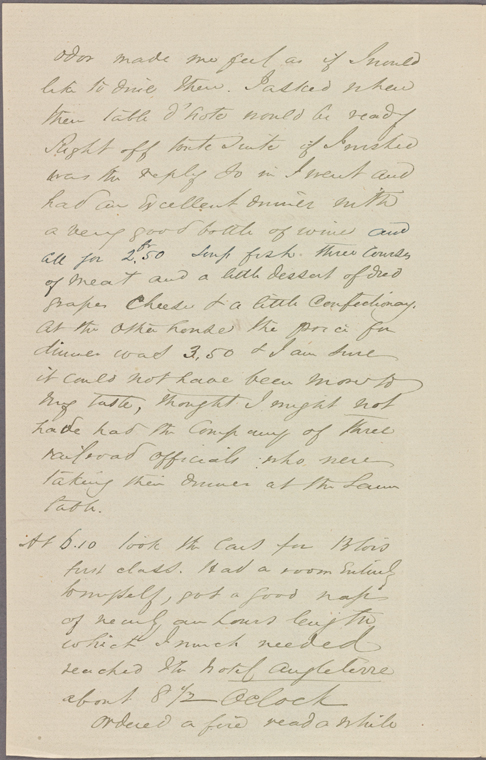 odor made me feel as if I would
like to dine there. I asked when
their table d'hote would be ready
Right off toute suite if I wished
was the reply So in I went and
had an excellent dinner with
a very good bottle of wine and
all for 2.50 Soup fish. three courses
of meat and a little dessert of dried
grapes Cheese & a little Confectionary.
At the other house the price for
dinner was 3,50 & I am sure
it could not have been more to
my taste, thought I might not
have had the Company of three
railroad officials who were
taking their dinner at the same
table.
At 6.10 took the Cars for Blois
first class. Had a room entirely
to myself, got a good nap
of nearly an hours length
which I much needed
reached the hotel Angleterre
about 8 1/2 Oclock
Ordered a fire read a while